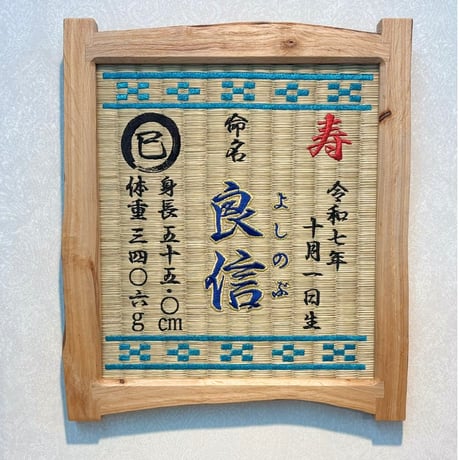 寿
令和七年
十月一日生
命名
よしのぶ
良信
巳
身長五十五・〇cm
体重三四〇六g